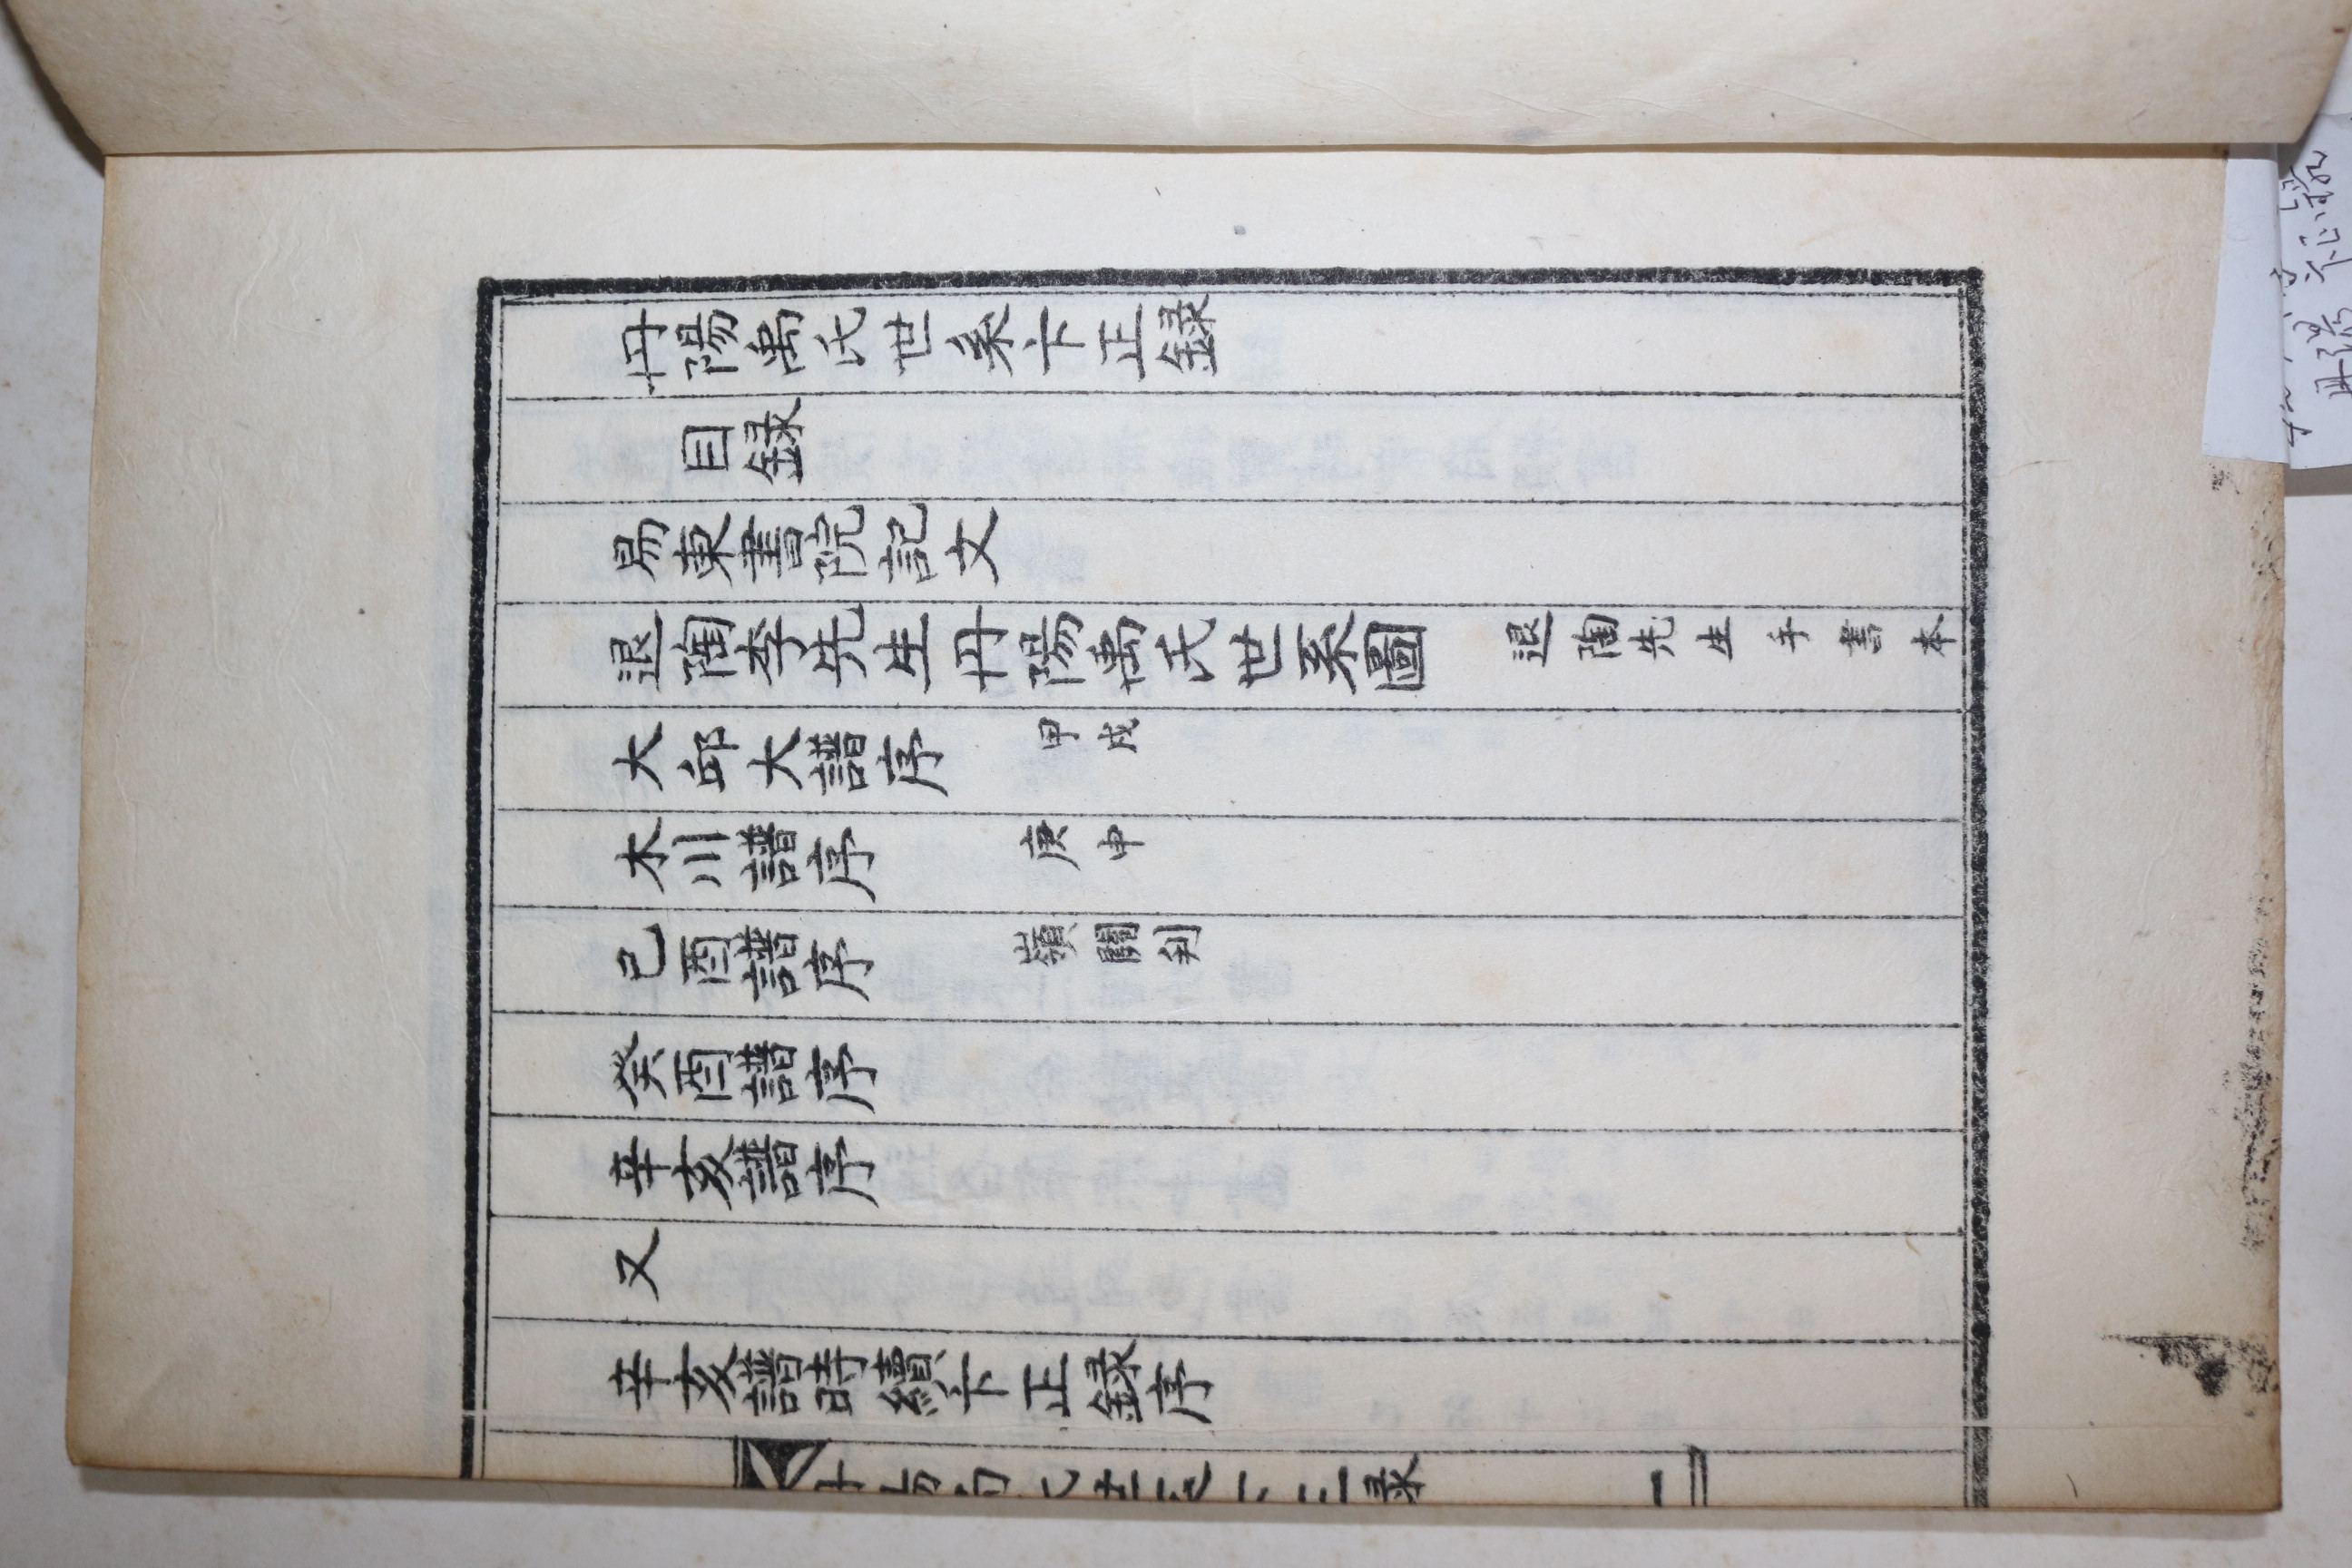 丹陽禹氏世系卞正録
目録
易東書院記文
退陶李先生丹陽禹氏世系圖 退陶先生手書本
大邱大譜序 甲戌
木川譜序 庚申
己酉譜序 嶺閣判
癸酉譜序
辛亥譜序
又
辛亥譜時續卞正録序
一